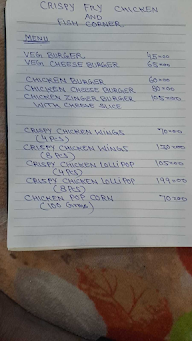 CRISPY FRY CHICKEN
AND
FISH CORNER
MENU
VEG BURGER 45=00
VEG CHEESE BURGER 65=00
CHICKEN BURGER 60=00
CHICKEN CHEESE BURGER 80=00
CHICKEN ZINGER BURGER 105=00
WITH CHEESE SLICE
CRISPY CHICKEN WINGS 70=00
(4 PCS)
CRISPY CHICKEN WINGS 130=00
(8 PCS)
CRISPY CHICKEN LOLLIPOP 105=00
(4 PCS)
CRISPY CHICKEN LOLLIPOP 199=00
(8 PCS)
CHICKEN POP CORN 70=00
(100 Grms)